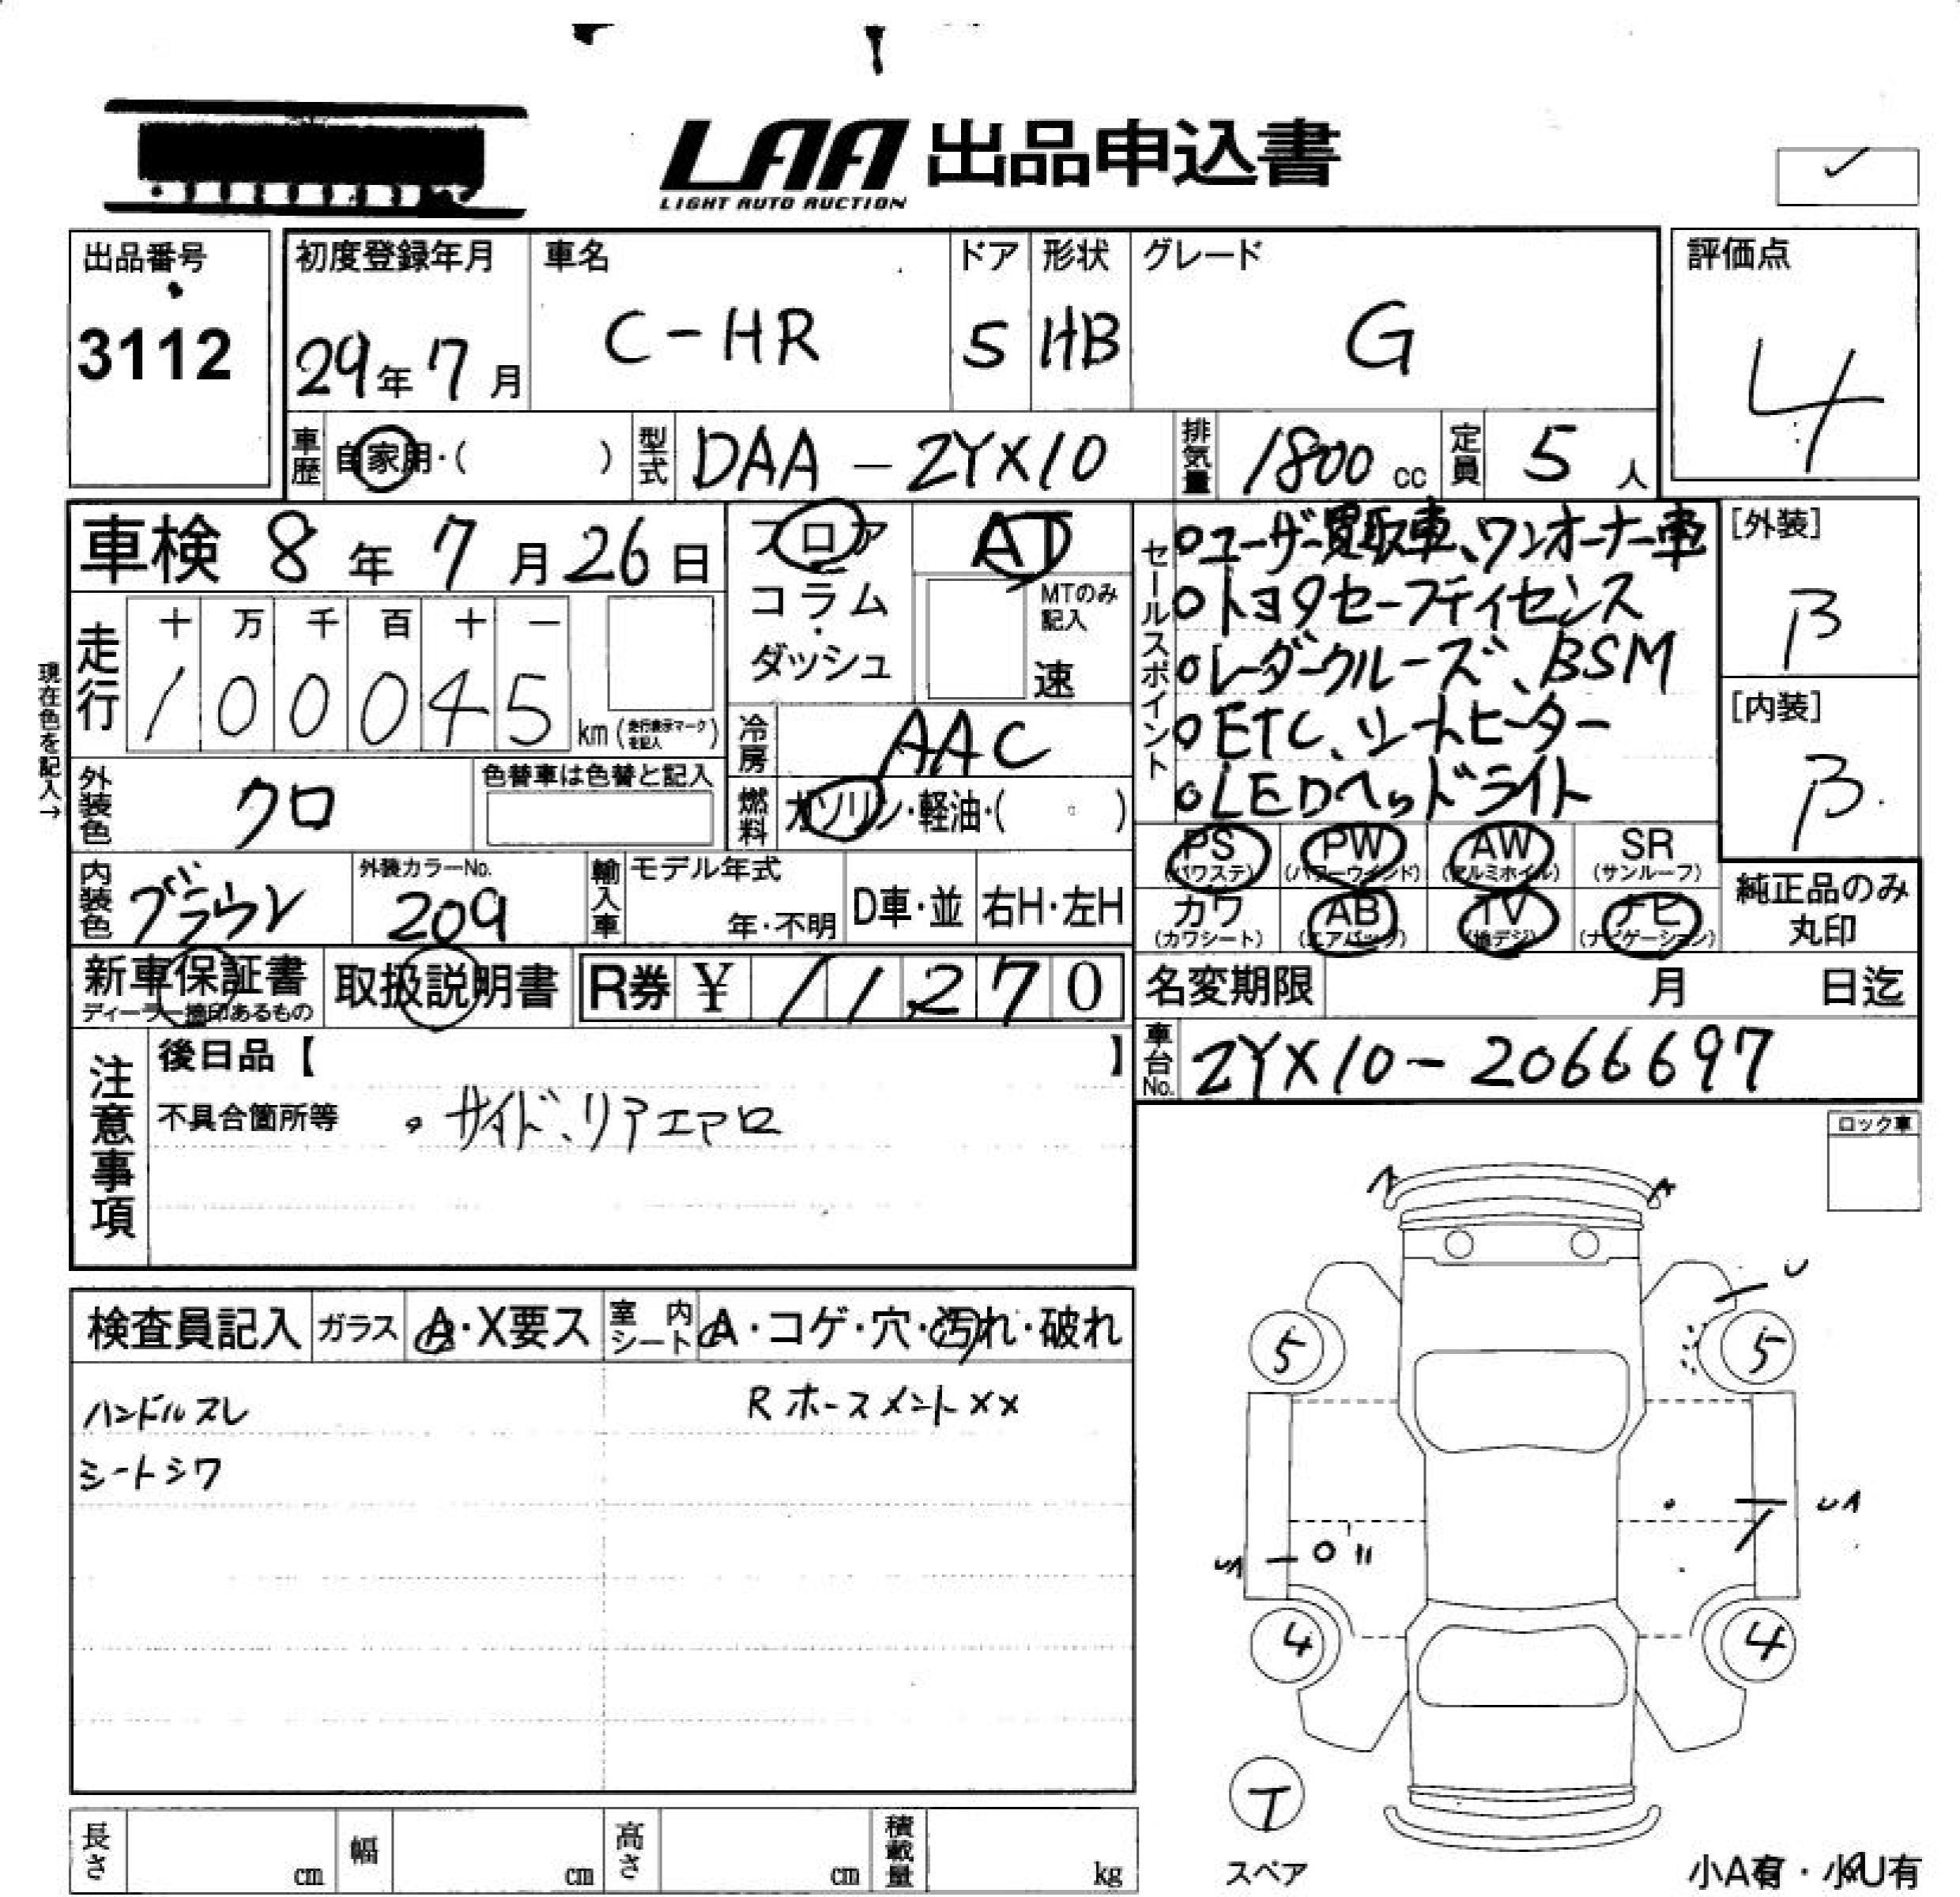 LAA 出品申込書
LIGHT AUTO AUCTION
出品番号
3112
初度登録年月
29年 7月
車名
C-HR
ドア
5
形状
HB
グレード
G
評価点
4
車歴
自家用・( )
型式
DAA-ZYX10
排気量
1800 cc
定員
5 人
車検 8年 7月 26日
フロア
コラム
・
ダッシュ
AT
MTのみ
記入
速
セールスポイント
○ユーザー買取車、ワンオーナー車
○トヨタセーフティセンス
○レーダークルーズ、BSM
○ETC、シートヒーター
○LEDヘッドライト
[外装]
B
[内装]
B
現在色を記入→
走行
十 万 千 百 十 一
1 0 0 0 4 5 km (走行表示マークを記入)
冷房
AAC
外装色
クロ
色替車は色替と記入
燃料
ガソリン・軽油・( )
内装色
ブラウン
外装カラーNo.
209
輸入車
モデル年式
年・不明
D車・並
右H・左H
PS
(パワステ)
PW
(パワーウインド)
AW
(アルミホイル)
SR
(サンルーフ)
カワ
(カワシート)
AB
(エアバック)
TV
(地デジ)
ナビ
(ナビゲーション)
純正品のみ
丸印
新車保証書
ディーラー捺印あるもの
取扱説明書
R券 ¥ 11270
名変期限 月 日迄
車台No.
ZYX10-2066697
注意事項
後日品【 】
不具合箇所等
。サイド、リアエアロ
ロック車
検査員記入
ガラス
A・X要ス
室内シート
A・コゲ・穴・汚れ・破れ
ハンドルスレ
シートシワ
Rホースメント××
A
A
U
5
5
UA
UA
4
4
T
スペア
長さ
cm
幅
cm
高さ
cm
積載量
kg
小A有・小U有